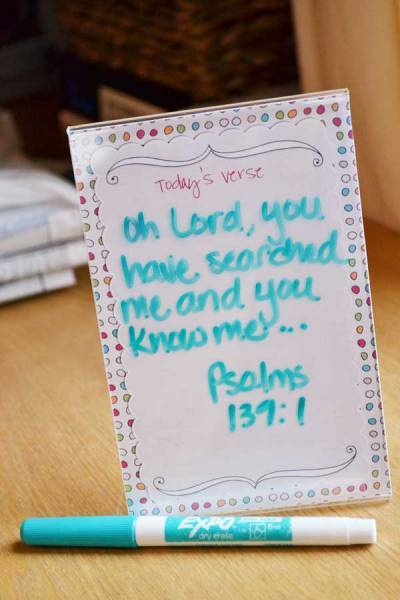 Today's verse
Oh Lord, you
have searched
me and you
know me! ...
Psalms
139:1
EXPO
dry erase